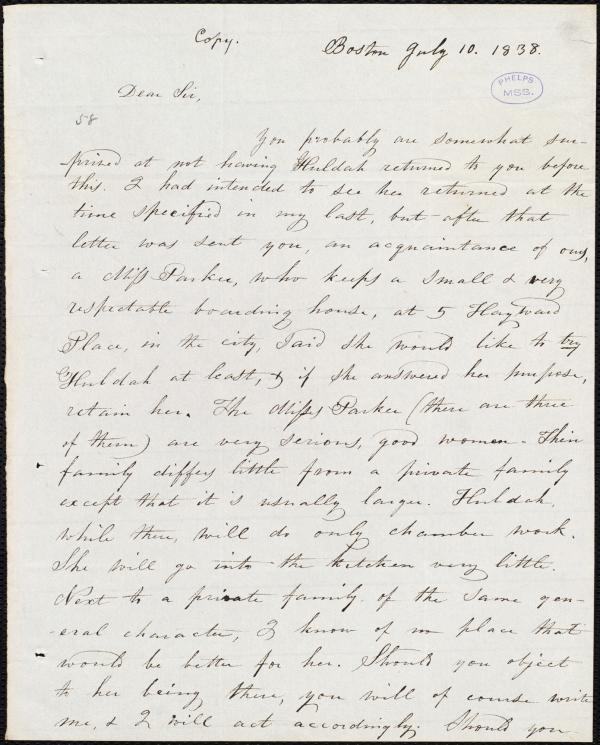 Copy.
Boston July 10. 1838.
PHELPS
MSS.
Dear Sir,
58
You probably are somewhat sur-
prised at not having Huldah returned to you before
this. I had intended to see her returned at the
time specified in my last, but after that
letter was sent you, an acquaintance of ours,
a Miss Parker, who keeps a small & very
respectable boarding house, at 5 Hayward
Place, in the city, said she would like to try
Huldah at least, & if she answered her purpose,
retain her. The Misses Parker (there are three
of them) are very serious, good women. Their
family differs little from a private family
except that it is usually larger. Huldah,
while there, will do only chamber work.
She will go into the kitchen very little.
Next to a private family of the same gen-
eral character, I know of no place that
would be better for her. Should you object
to her being there, you will of course write
me, & I will act accordingly. Should you